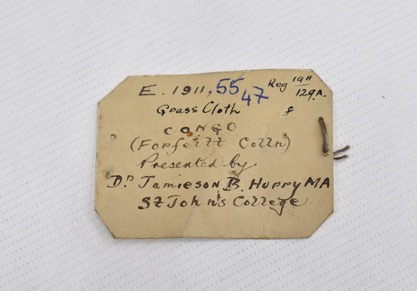 E. 1911, 55 47 Reg 1911/129.A.
Grass Cloth f
CONGO
(Forfeitt Colln)
Presented by
Dr Jamieson B. Hurry MA
St John's College